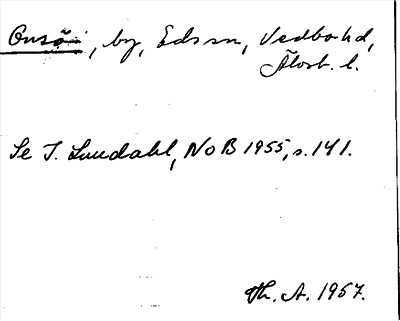 Onsö, by, Eds sn, Vedbo hd,
Älvsb. l.
Se I. Lundahl, NoB 1955, s. 141.
Th. A. 1957.